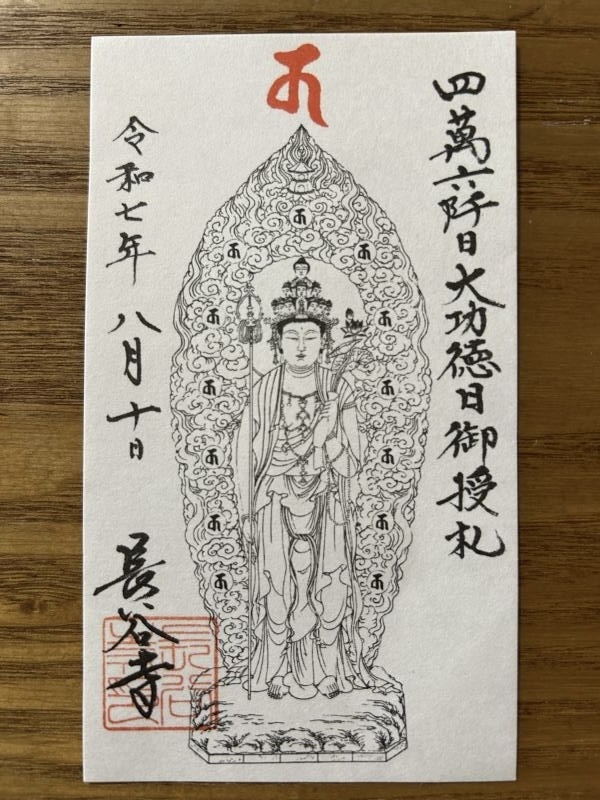 四萬六阡日大功徳日御授札
令和七年 八月十日
長谷寺